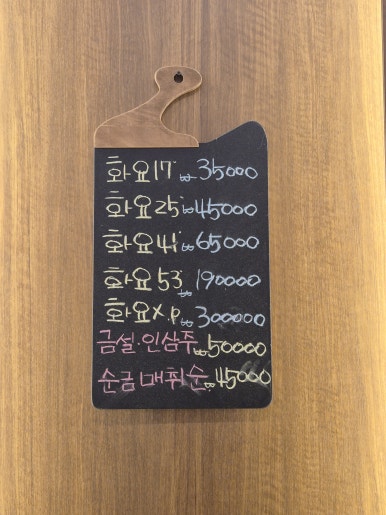 화요17° ₩35000
화요25° ₩45000
화요41° ₩65000
화요53° ₩190000
화요X.P ₩300000
금설·인삼주 ₩50000
순금매취순 ₩45000